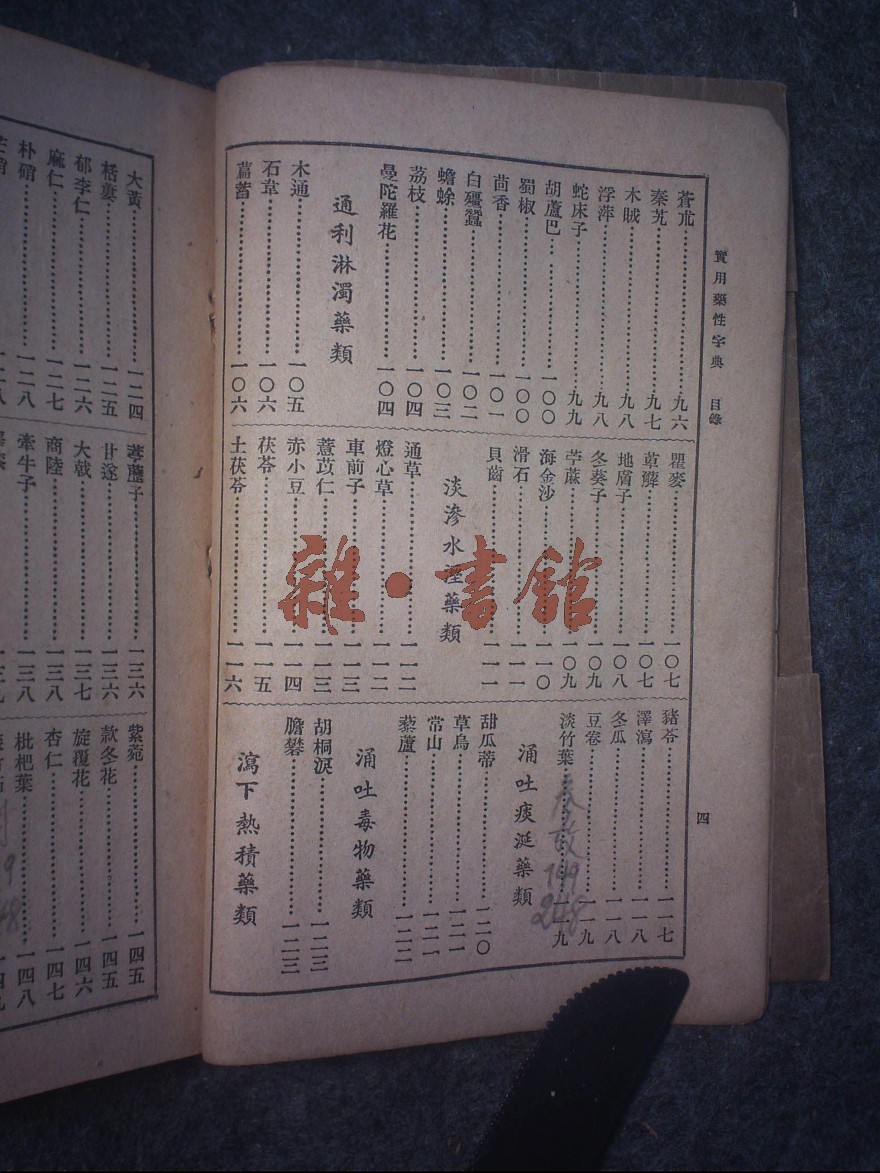 實用藥性字典 目錄
四
蒼朮九六
秦艽九七
木賊九八
浮萍九八
蛇床子九九
胡蘆巴一〇〇
蜀椒一〇〇
茴香一〇一
白殭蠶一〇二
蟾蜍一〇三
荔枝一〇四
曼陀羅花一〇四
通利淋濁藥類
木通一〇五
石韋一〇六
萹蓄一〇六
瞿麥一〇七
萆薢一〇七
地膚子一〇八
冬葵子一〇九
苧蔴一〇九
海金沙一一〇
滑石一一一
貝齒一一一
淡滲水溼藥類
通草一一二
燈心草一一二
車前子一一三
薏苡仁一一三
赤小豆一一四
茯苓一一五
土茯苓一一六
豬苓一一七
澤瀉一一八
冬瓜一一八
豆卷一一九
淡竹葉一一九
149
248
涌吐痰涎藥類
甜瓜蒂一二〇
草烏一二一
常山一二一
藜蘆一二二
涌吐毒物藥類
胡桐淚一二三
膽礬一二三
瀉下熱積藥類
大黃一二四
栝蔞一二五
郁李仁一二六
麻仁一二七
朴硝一二八
芒硝一二八
葶藶子一三六
甘遂一三六
大戟一三七
商陸一三八
牽牛子一三八
紫菀一四五
款冬花一四五
旋覆花一四六
杏仁一四七
枇杷葉一四八
雜·書館